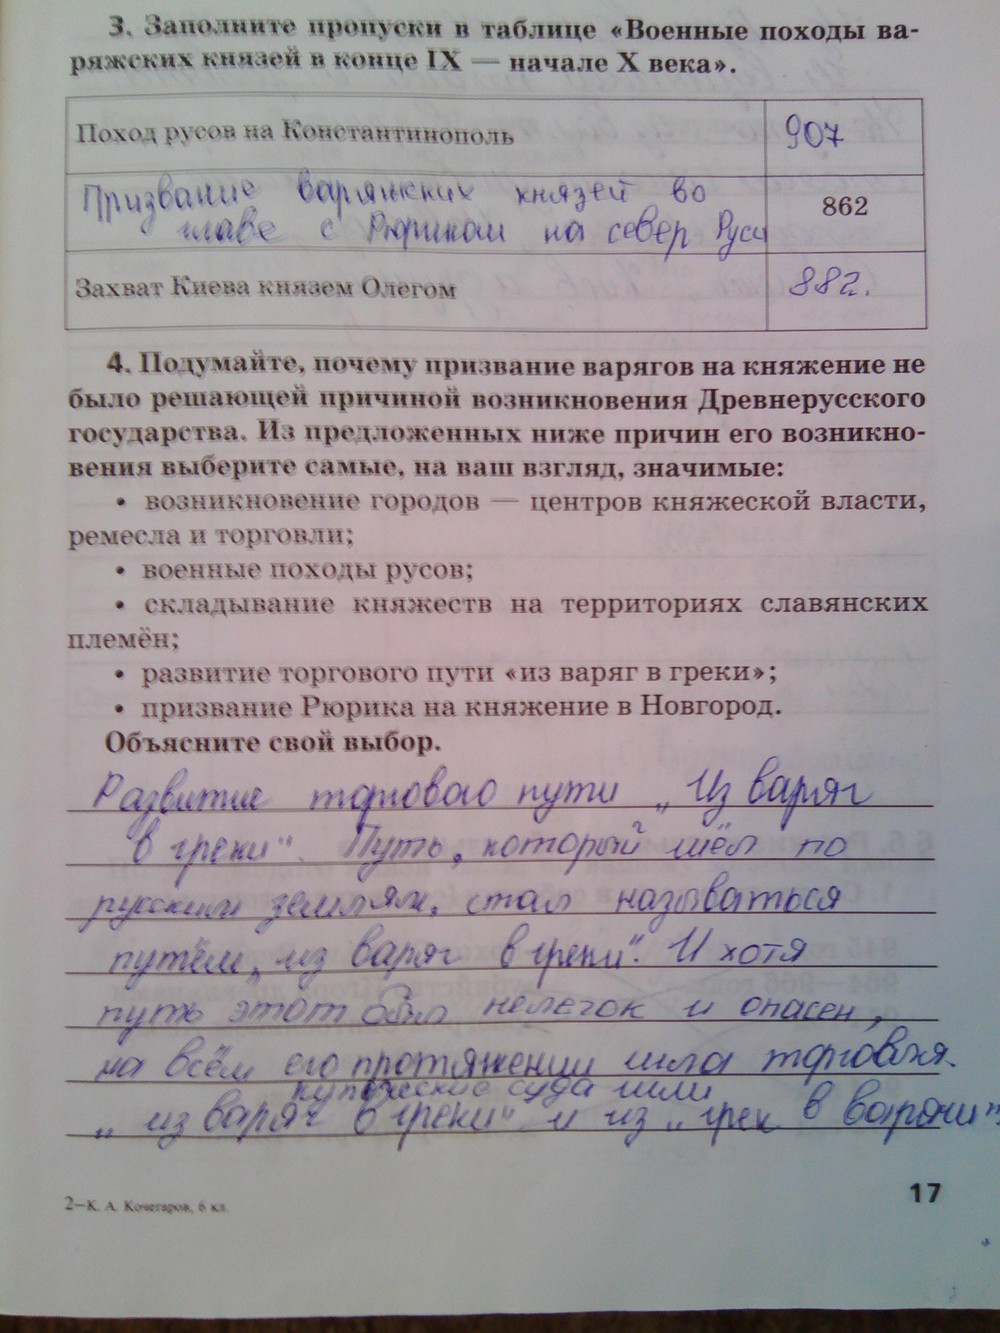 3. Заполните пропуски в таблице «Военные походы ва-
ряжских князей в конце IX — начале X века».
Поход русов на Константинополь 907
Призвание варяжских князей во
главе с Рюриком на север Руси 862
Захват Киева князем Олегом 882.
4. Подумайте, почему призвание варягов на княжение не
было решающей причиной возникновения Древнерусского
государства. Из предложенных ниже причин его возникно-
вения выберите самые, на ваш взгляд, значимые:
• возникновение городов — центров княжеской власти,
ремесла и торговли;
• военные походы русов;
• складывание княжеств на территориях славянских
племён;
• развитие торгового пути «из варяг в греки»;
• призвание Рюрика на княжение в Новгород.
Объясните свой выбор.
Развитие торгового пути „Из варяг
в греки". Путь, который шёл по
русским землям, стал называться
путём „из варяг в греки". И хотя
путь этот был нелегок и опасен,
на всём его протяжении шла торговля.
купеческие суда шли
„из варяг в греки" и из „грек в варяги".
2—К. А. Кочегаров, 6 кл.
17